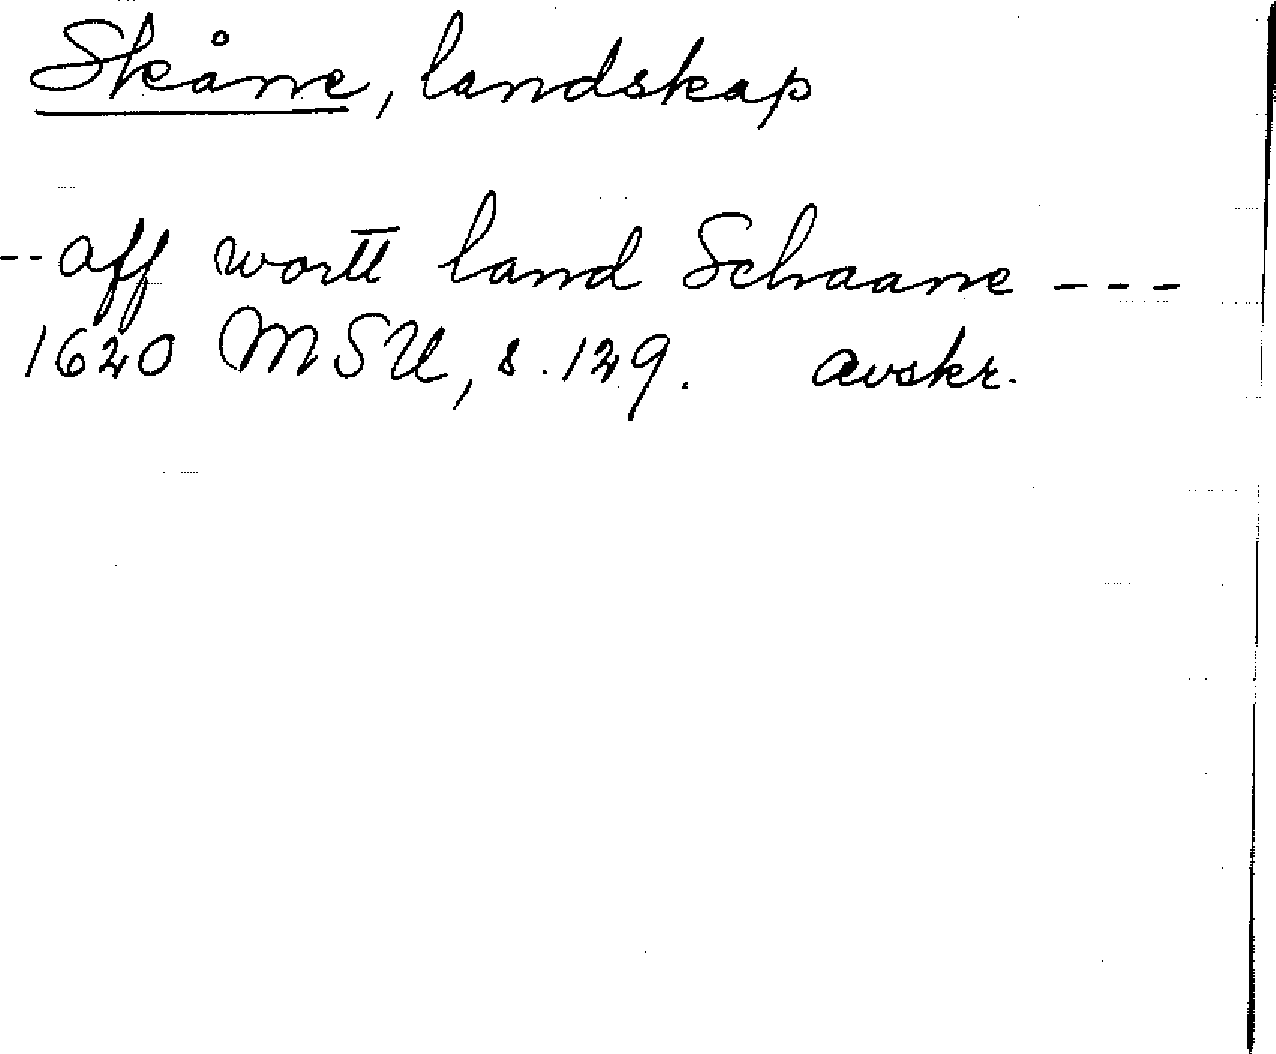 Skåne, landskap
-- aff wortt land Schaane ---
1620 MSU, s. 129. avskr.